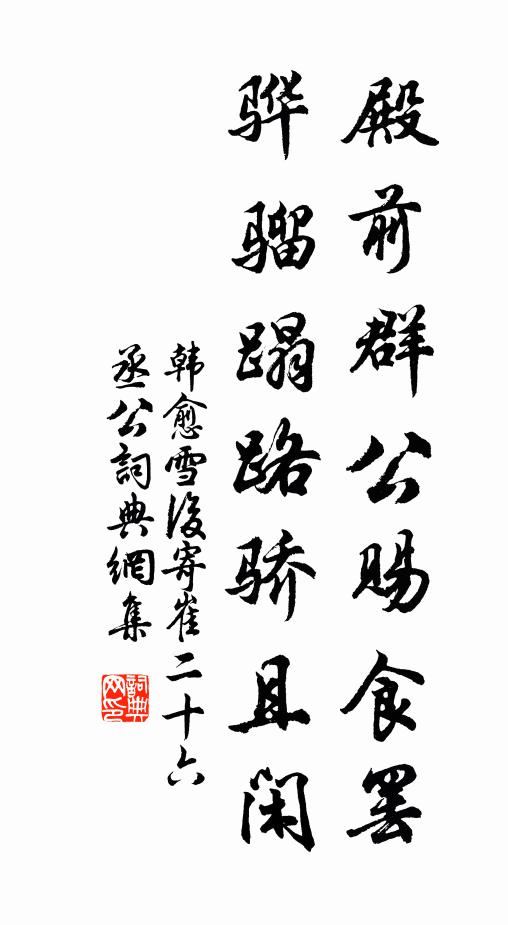 殿前群公赐食罢
骅骝蹋路骄且闲
韩愈雪後寄崔二十六
丞公詞典網集
詞典网印